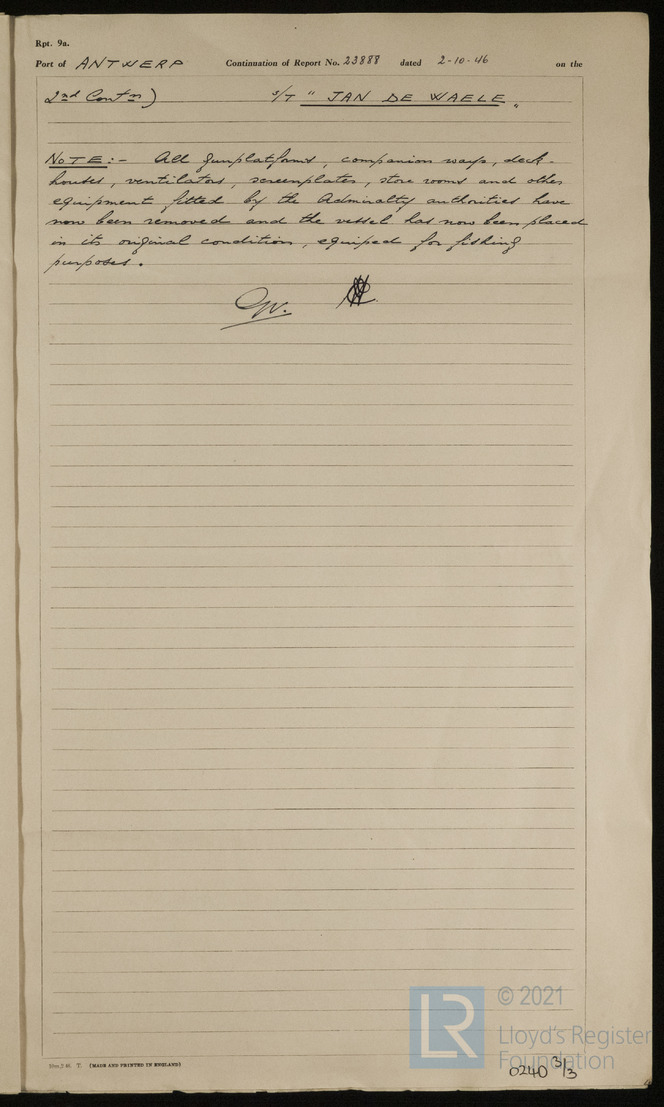 Rpt. 9a.
Port of ANTWERP Continuation of Report No. 23888 dated 2-10-46 on the
2nd Contn) S/T " JAN DE WAELE "
NOTE:- All gunplatforms, companion ways, deck-
houses, ventilators, screenplates, store rooms and other
equipment fitted by the Admiralty authorities have
now been removed and the vessel has now been placed
in its original condition, equiped for fishing
purposes.
(MADE AND PRINTED IN ENGLAND)
LR
© 2021
Lloyd's Register
Foundation
0240 3/3